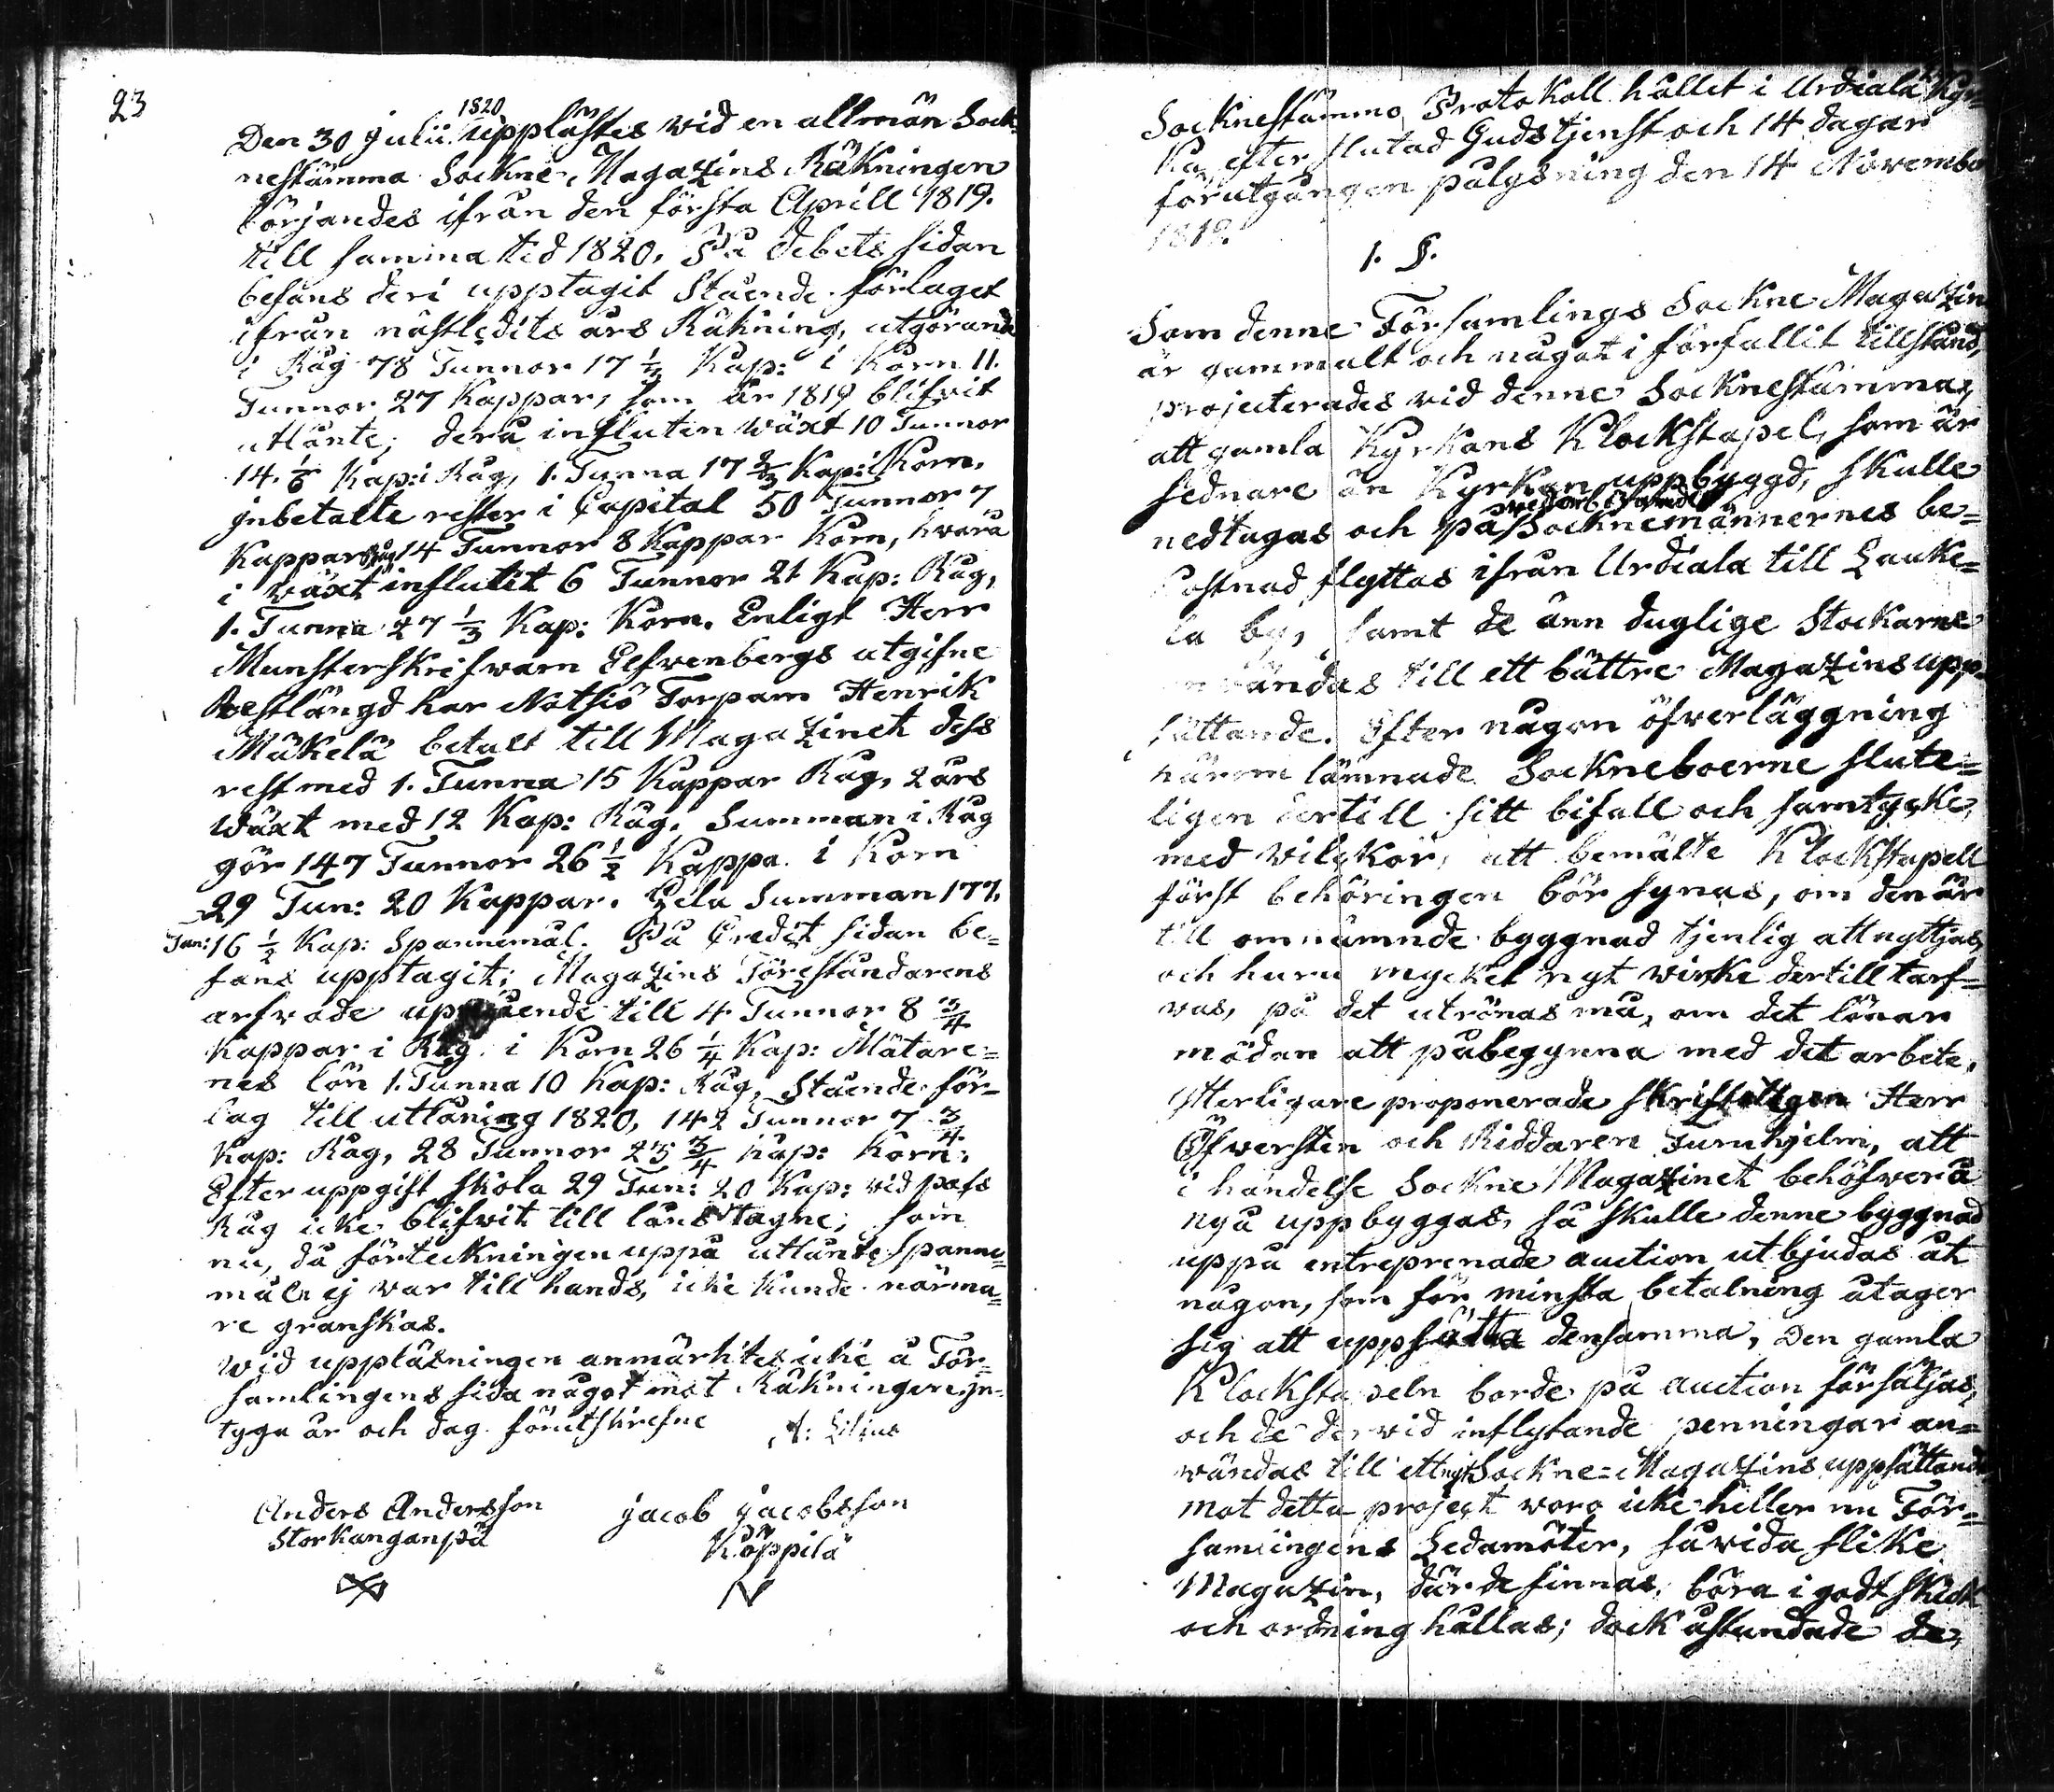 23
Den 30 Julii 1820 upplästes wid en allmän Sock¬
nestämma Sockne Magazins Räkningen
börjandes ifrån den första Aprill 1819.
till samma tid 1820. På Debets sidan
befans deri upptagit Stående förlaget
ifrån nästledits års Räkning, utgörande
i Råg 78 Tunnor 17 ½ Kap: i Korn 11.
Tunnor 27 Kappar, som år 1819 blifvit
utlånte; derå influten wäxt 10 Tunnor
14. 1/6 Kap: i Råg, 1. Tunna 17 2/3 Kap: i Korn.
Inbetalte rester i Capital 50 Tunnor 7
Kappar Råg 14 Tunnor 8 Kappar Korn, hvarå
i wäxt influtit 6 Tunnor 21 Kap: Råg,
1. Tunna 27 1/3 Kap: Korn. Enligt Herr
Munsterskrifwarn Elfvenbergs utgifne
Restlängd har Notsiö Torparn Henrik
Mäkelä betalt till Magazinet dess
rest med 1. Tunna 15 Kappar Råg, 2 års
Wäxt med 12 Kap: Råg. Summan i Råg
gör 147 Tunnor 26 ½ Kappa i Korn
29 Tun: 20 Kappar. Hela Summan 177.
Tun: 16 ½ Kap: Spannemål. På Credit sidan be=
fans upptagit: Magazins Föreståndarens
arfvode uppgående till 4 Tunnor 8 3/4
Kappar i Råg i Korn 26 1/4 Kap: Mätare=
nes lön 1. Tunna 10 Kap: Råg, Stående för-
lag till utlåning 1820, 142 Tunnor 7 3/4
Kap: Råg, 28 Tunnor 25 3/4 Kap: Korn.
Efter uppgift skola 29 Tun: 20 Kap: vid pass
Råg icke blifwit till låns tagne; som
nu, då förteckningen uppå utlånte Spanne=
målen ej war till hands, icke kunde närma=
re granskas.
Wid uppläsningen anmärktes icke å För=
samlingens sida något mot Räkningen, In=
tyga år och dag förutskrefne A: Lilius
Anders Andersson Jacob Jacobsson
Storkanganpä Köppilä
Socknestämmo Protokoll hållit i Urdiala Kyr=
ka, efter slutad Gudstjenst och 14 dagar
förutgången pålysning den 14 November
1819.
1. §.
Som denne Församlings Sockne Magazin
är gammalt och något i förfallit tillstånd,
projecterades vid denne Socknestämma,
att gamla Kyrkans Klockstapel, som är
sednare än Kyrkan uppbyggd, skulle
nedtagas och på Socknemännernes be=
kostnad flyttas ifrån Urdiala till Lauke=
la by, samt de änn duglige Stockarne
användas till ett bättre Magazins upp=
sättande. Efter någon öfverläggning
härom lämnade Sockneboerne slute=
ligen dertill sitt bifall och samtycke,
med wilkor, att bemälte Klockstapell
först behöringen bör synas, om den är
till omnämnde byggnad tjenlig att nyttjas,
och huru mycket nytt wirke dertill tarf=
vas, på det utrönas må, om det lönar
mödan att påbegynna med det arbete.
Ytterligare proponerade skrifteligen Herr
Öfwersten och Riddaren Furuhjelm, att
i händelse Sockne Magazinet behöfver å
nyo uppbyggas, så skulle denne byggnad
uppå entreprenade auction utbjudas åt
någon, som för minsta betalning åtager
sig att uppsätta densamma, Den gamla
Klockstapeln borde på auction försäljas,
och de dervid inflytande penningar an=
wändas till ett nytt Sockne=Magazins uppsättande
mot detta project woro icke heller nu För=
samlingens Ledamöter, såvida slike
Magazin, där de finnas, böra i godt skick
och ordning hållas; dock åstundade de,